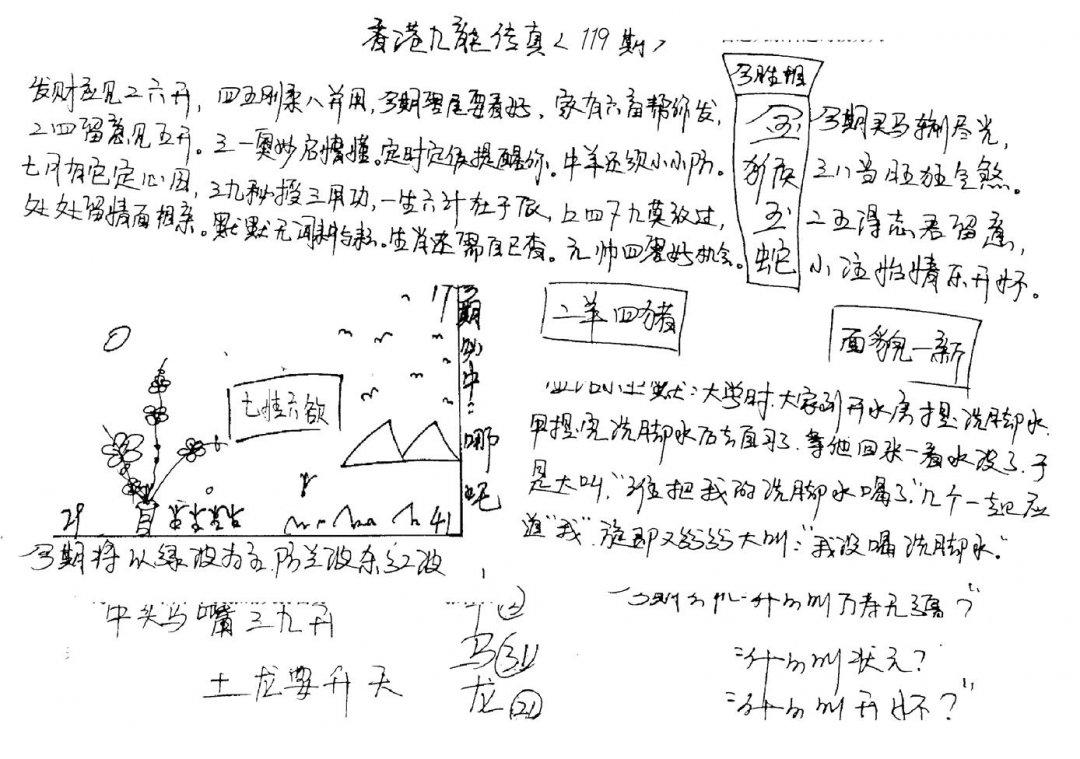 香港九龙传真<119期>
发财应见二六开，四五刚柔八并用，今期望尾要看好，家有六畜帮你发，
二四留意见五开。三一奥妙启情懂。定时定候提醒你。牛羊还须小小防。
七月有它定心周，三九秒授三用功，一生六计在于辰，七四下九莫放过，
处处留情面相亲。默默无闻勤劲耘。生肖还需自己查。元帅四军好机会。
今胜坦
玉
猴
玉
蛇
今期买马输尽光，
三八当旺狂全煞。
二五得志君留意，
小注怡情乐开怀。
17
今期必中：哪吧
七情六欲
29
41
二羊四猪
面貌一新
今期将以绿波为主，防兰波杀红波
：大学时，大家到开水房提洗脚水，
甲提完洗脚水后去自习了，等他回来一看水没了，于
是大叫，“谁把我的洗脚水喝了”几个一起应
道“我”，旋即又纷纷大叫：“我没喝洗脚水。”
牛头马嘴三九开
土龙要升天
马(31)
龙(21)
什么叫万寿无疆？”
“什么叫状元？
“什么叫开怀？”